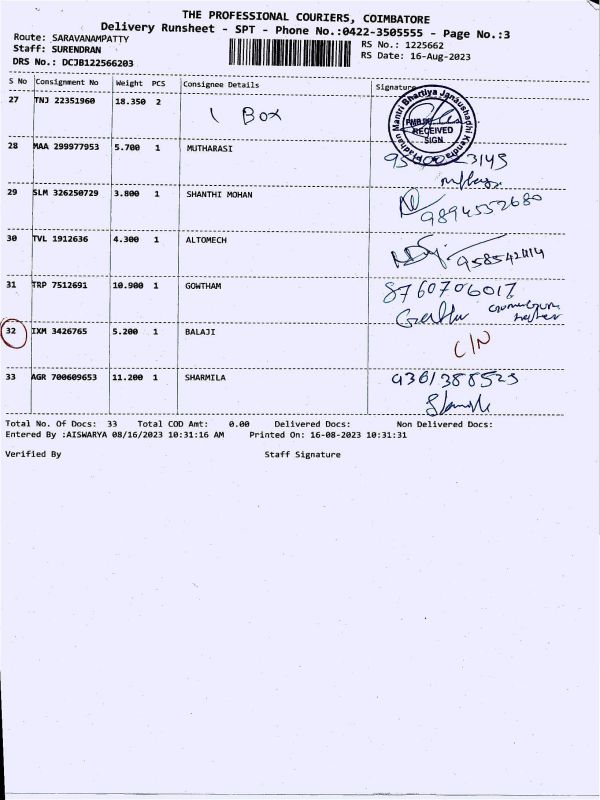 THE PROFESSIONAL COURIERS, COIMBATORE
Delivery Runsheet - SPT - Phone No.:0422-3505555 - Page No.:3
Route: SARAVANAMPATTY
Staff: SURENDRAN
DRS No.: DCJB122566203
RS No.: 1225662
RS Date: 16-Aug-2023
S No Consignment No Weight PCS Consignee Details Signature
27 TNJ 22351960 18.350 2 1 Box
Pradhan Mantri Bhartiya Janaushadhi Kendra
RECEIVED
SIGN.
28 MAA 299977953 5.700 1 MUTHARASI
29 SLM 326250729 3.800 1 SHANTHI MOHAN 9894552680
30 TVL 1912636 4.300 1 ALTOMECH
31 TRP 7512691 10.900 1 GOWTHAM 8760706017
32 IXM 3426765 5.200 1 BALAJI C/N
33 AGR 700609653 11.200 1 SHARMILA 9361388523
Total No. Of Docs: 33 Total COD Amt: 0.00 Delivered Docs: Non Delivered Docs:
Entered By :AISWARYA 08/16/2023 10:31:16 AM Printed On: 16-08-2023 10:31:31
Verified By Staff Signature